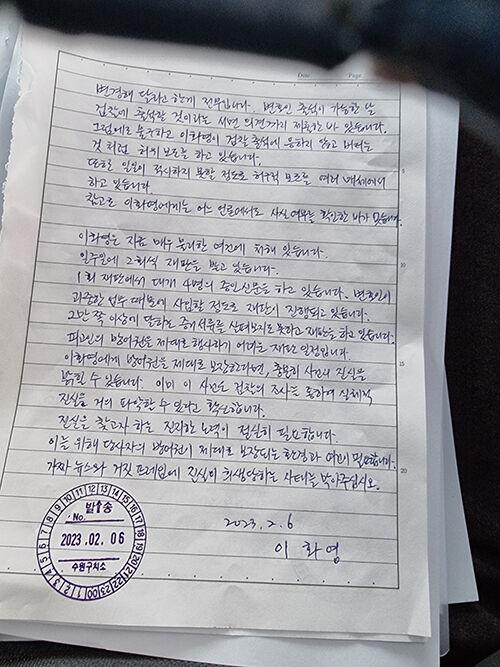 Date Page
변경해 달라고 한게 전부입니다. 변호인 출석이 가능한 날
검찰에 출석할 것이라는 서면 의견까지 제출한 바 있습니다.
그럼에도 불구하고 이화영이 검찰 출석에 응하지 않고 버티는
것 처럼 허위 보도를 하고 있습니다.
또한 일일이 적시하지 못할 정도로 허구적 보도를 여러 매체에서
하고 있습니다.
참고로 이화영에게는 어느 언론에서도 사실 여부를 확인한 바가 없습니다.
이화영은 지금 매우 불리한 여건에 처해 있습니다.
일주일에 2회씩 재판을 받고 있습니다.
1회 재판에서 대개 4명의 증인신문을 하고 있습니다. 변호인이
과중한 업무 때문에 사임할 정도로 재판이 진행되고 있습니다.
2만 쪽 이상에 달하는 증거서류를 살펴보지도 못하고 재판을 하고 있습니다.
피고인의 방어권을 제대로 행사하기 어려운 재판 일정입니다.
이화영에게 방어권을 제대로 보장한다면, 충분히 사건의 진실을
밝힐 수 있습니다. 이미 이 사건도 검찰의 조사를 통하여 실체적
진실을 거의 파악할 수 있다고 확신합니다.
진실을 찾고자 하는 진지한 노력이 절실히 필요합니다.
이를 위해 당사자의 방어권이 제대로 보장되는 환경과 여건이 필요합니다.
가짜 뉴스와 거짓 프레임에 진실이 희생당하는 사태를 막아주십시오.
2023. 2. 6
이 화 영
발송
No.
2023.02.06
수원구치소
5
10
15
20